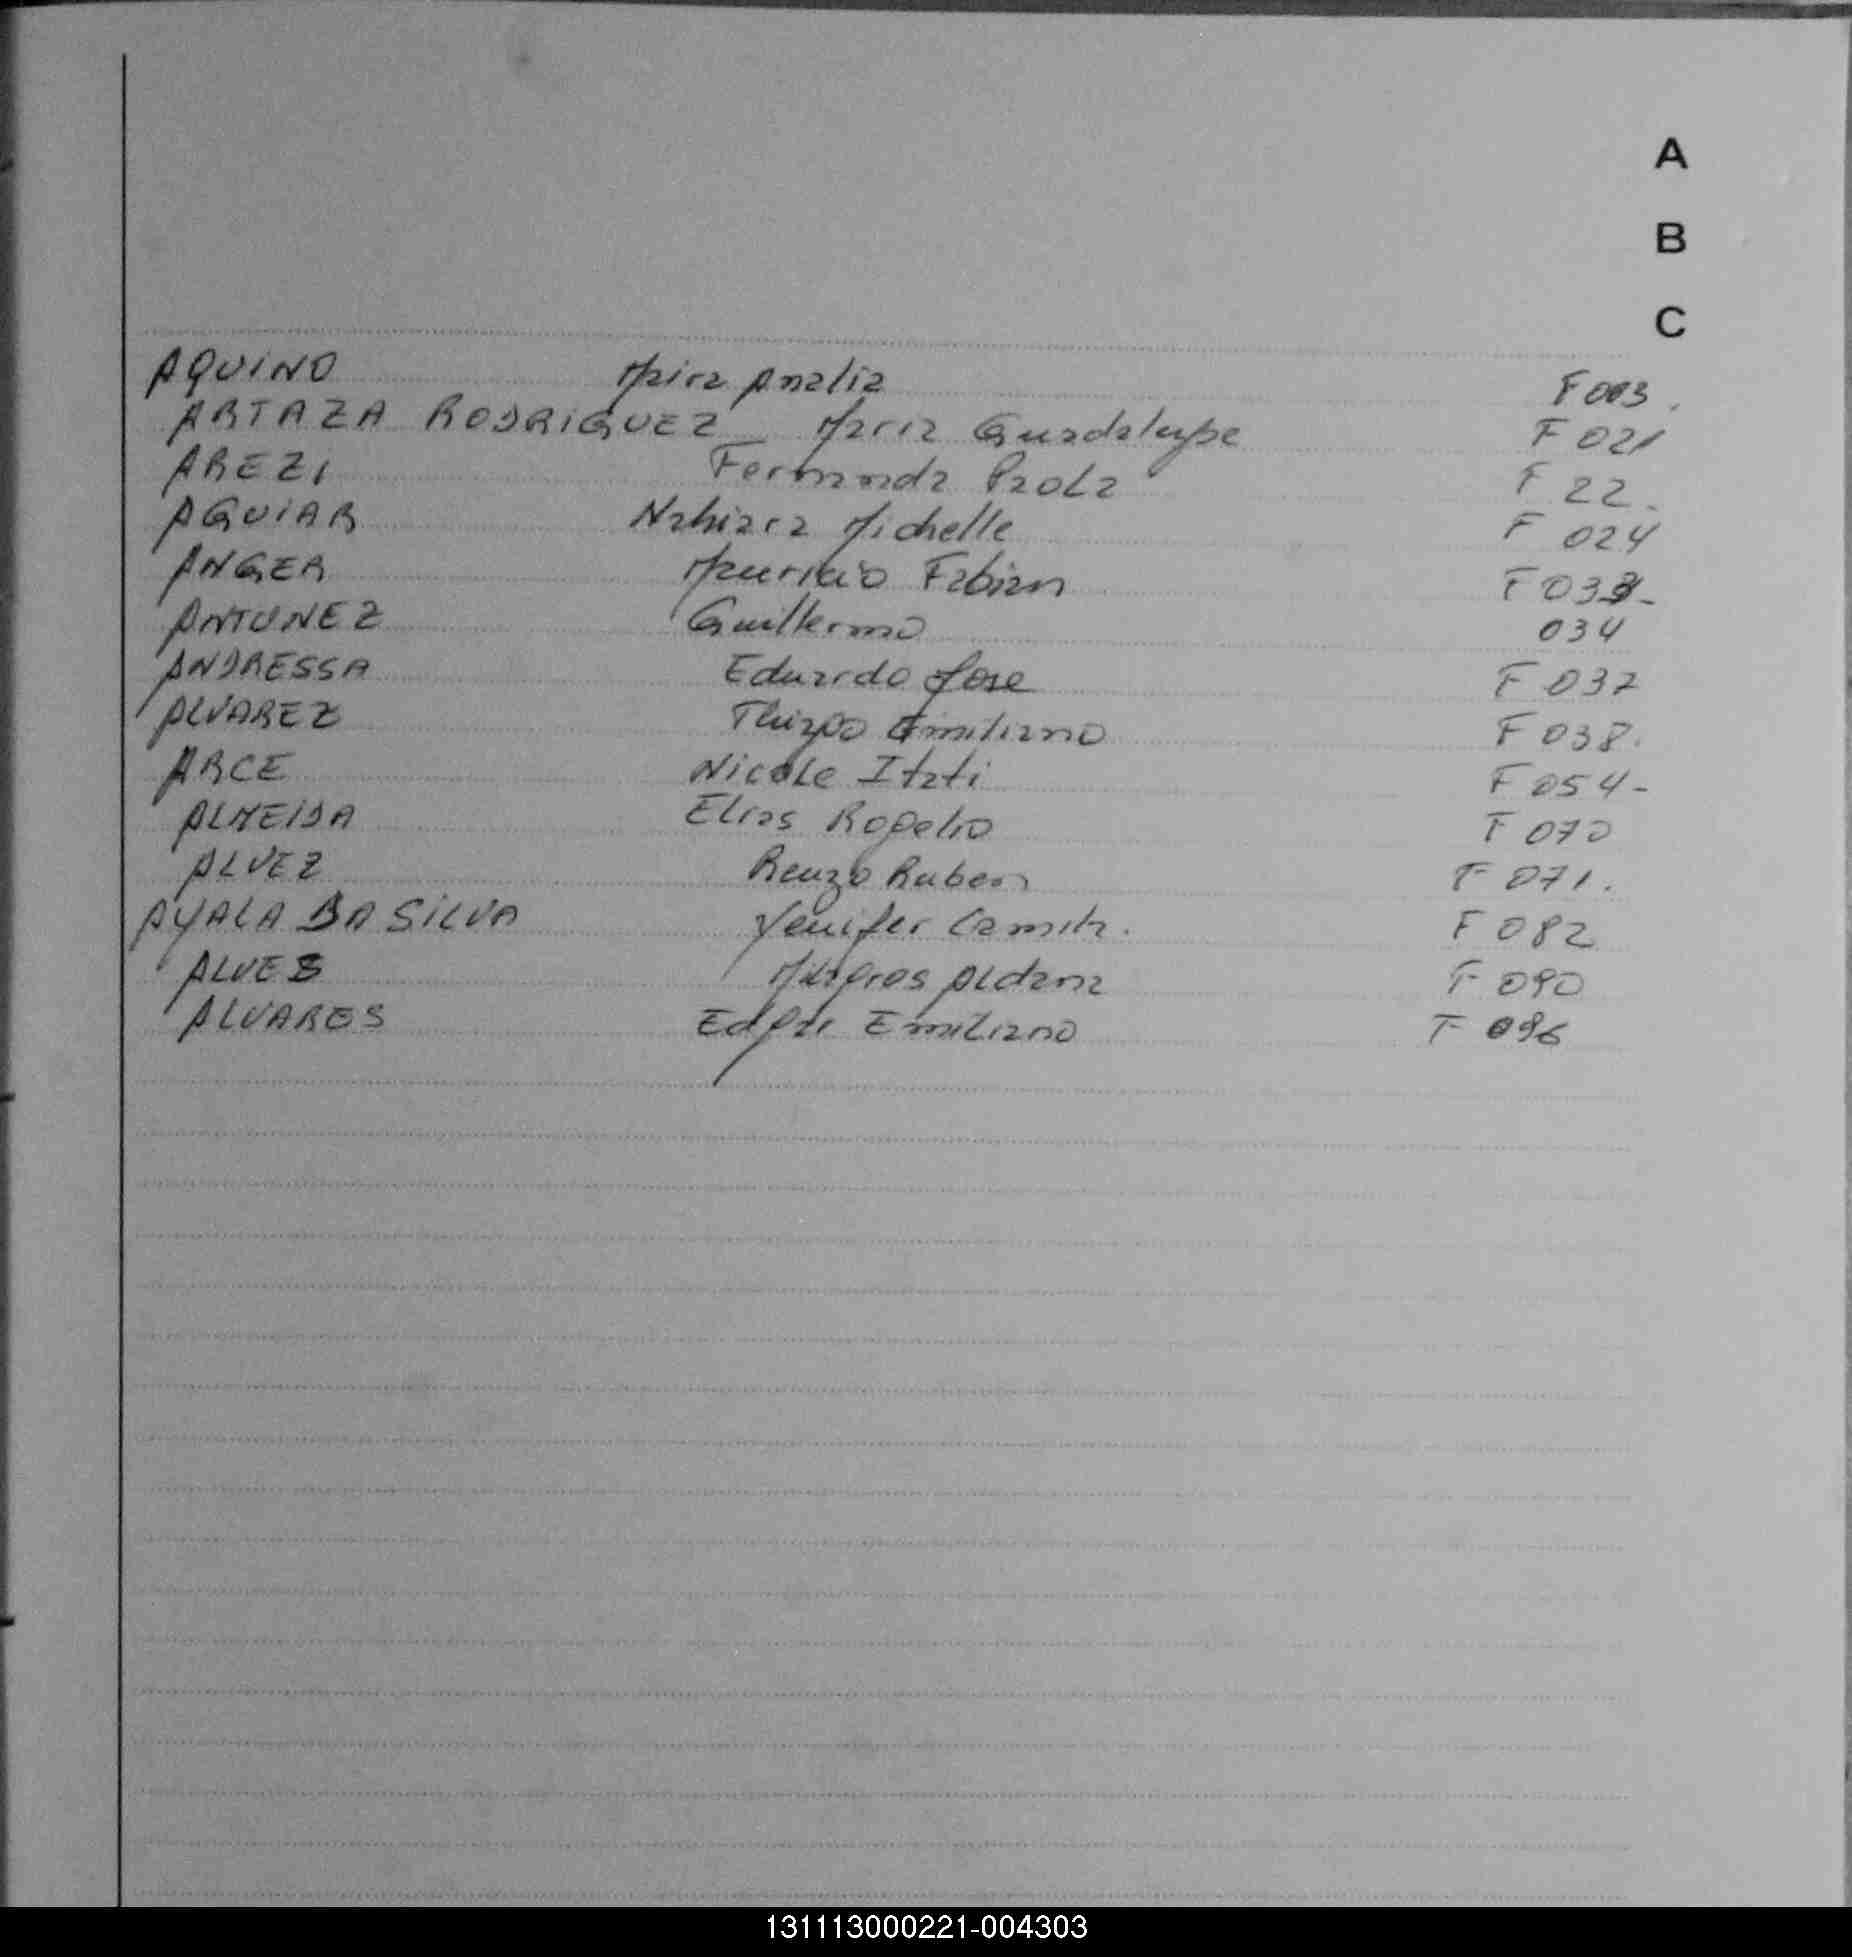 A
B
C
AQUINO Maira Analia F 003.
ARTAZA RODRIGUEZ Maria Guadalupe F 021
AREZI Fernanda Paola F 22.
AGUIAR Nahiara Michelle F 024
ANGER Mauricio Fabian F 033-
ANTUNEZ Guillermo 034
ANDRESSA Eduardo Jose F 037
ALVAREZ Thiago Emiliano F 038.
ARCE Nicole Itati F 054-
ALMEIDA Elias Rogelio F 070
ALVEZ Renzo Ruben F 071.
AYALA DA SILVA Yenifer Camila. F 082
ALVES Milagros Aldana F 090
ALVARES Emiliano F 096
131113000221-004303